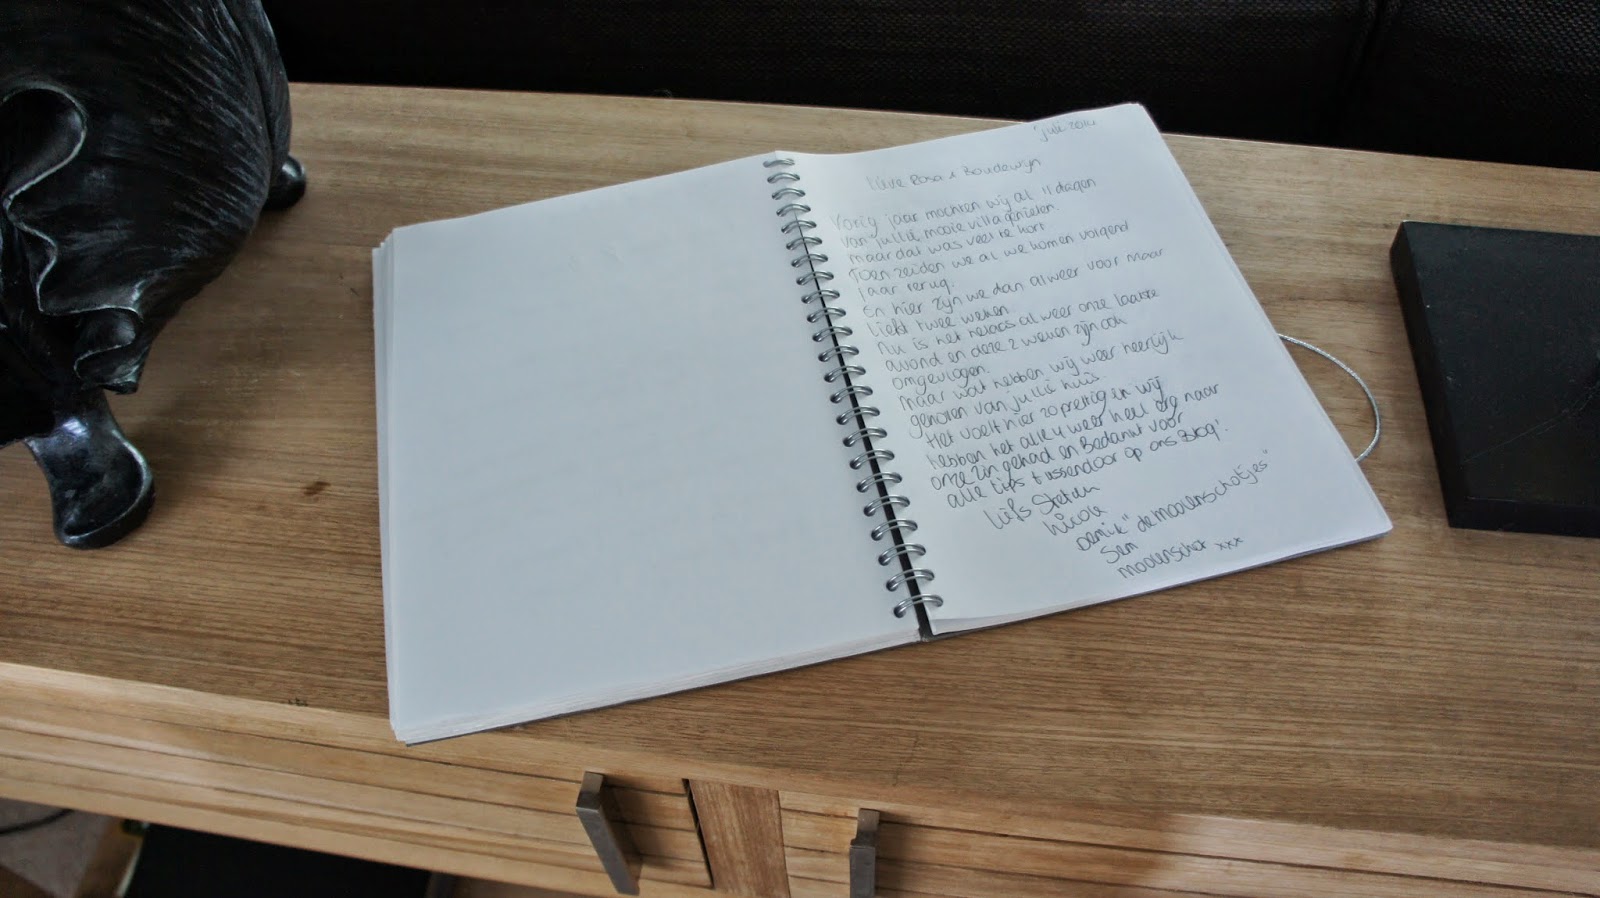 juli 2014
Lieve Rosa & Boudewijn
Vorig jaar mochten wij al 11 dagen
van jullie mooie villa genieten.
maar dat was veel te kort
Toen zeiden we al we komen volgend
jaar terug.
En hier zijn we dan alweer voor maar
liefst twee weken
Nu is het helaas al weer onze laatste
avond en deze 2 weken zijn ook
omgevlogen.
maar wat hebben wij weer heerlijk
genoten van jullie huis
Het voelt hier zo prettig en wij
hebben het alle 4 weer heel erg naar
onze zin gehad en Bedankt voor
alle tips tussendoor op ons Blog!
Liefs Stefan
Nicole
"de moolenschotjes"
Sem
Moolenschot xxx